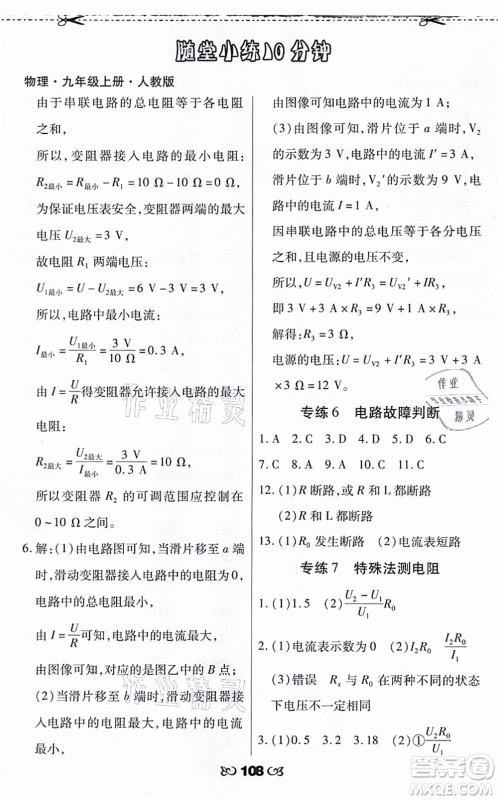 随堂小练10分钟
物理·九年级上册·人教版
由于串联电路的总电阻等于各电阻
之和,
所以,变阻器接入电路的最小电阻:
R2最小=R−R1=10 Ω−10 Ω=0 Ω.
为保证电压表安全,变阻器两端的最大
电压 U2最大=3 V,
故电阻 R1 两端电压:
U1最小=U−U2最大=6 V−3 V=3 V,
所以,电路中最小电流:
I最小=U1最小/R1=3 V/10 Ω=0.3 A,
由 I=U/R得变阻器允许接入电路的最大
电阻:
R2最大=U2最大/I最小=3 V/0.3 A=10 Ω,
所以变阻器 R2 的可调范围应限制在
0~10 Ω之间.
6.解:(1)由电路图可知,当滑片移至 a 端
时,滑动变阻器接入电路的电阻为0,
电路中的总电阻最小,
由 I=U/R可知,此时电路中电流最大,
由图像可知,对应的是图乙中的 B 点;
(2)当滑片移至 b 端时,滑动变阻器接
入电路的电阻最大,此时电路中的电
流最小,
由图像可知电路中的电流为 1 A;
(3)由图像可知,滑片位于 a 端时,V2
的示数为 3 V,电路中的电流 I′=3 A;
滑片位于 b 端时,V2′的示数为 9 V,电
路中的电流 I=1 A,
因串联电路中总电压等于各电压之和,
且电源的电压不变,
所以,U=UV2+I′R3=UV2′+IR3,
即 3 V+3 A×R3=9 V+1 A×R3,
解得:R3=3 Ω,
电源的电压 U=UV2+I′R3=3 V+3 A
×3 Ω=12 V.
专练6 电路故障判断
1.A 2.C 3.D 4.D 5.D 6.C
7.C 8.A 9.A 10.A 11.C
12.(1)R 断路,或R 和 L 都断路
(2)R 断路或 R 和 L 都断路
13.(1)R0 发生断路 (2)电流表短路
专练7 特殊法测电阻
1.(1)1.5 (2)(U2−U1)/U1 R0
2.(1)电流表示数为0 (2)I2R0 I2R0/I1
(3)错误 Rx 与 R0 在并联的状态
下电压不一定相等
3.(1)0.5 3.2 3.18 (2)①U2R0/U1
108
作业精灵
作业精灵
作业
精灵